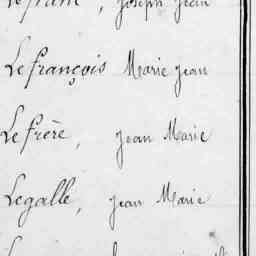 Lefranc, Joseph Jean
Lefrançois Marie Jean
Lefrère, Jean Marie
Legalle, Jean Marie